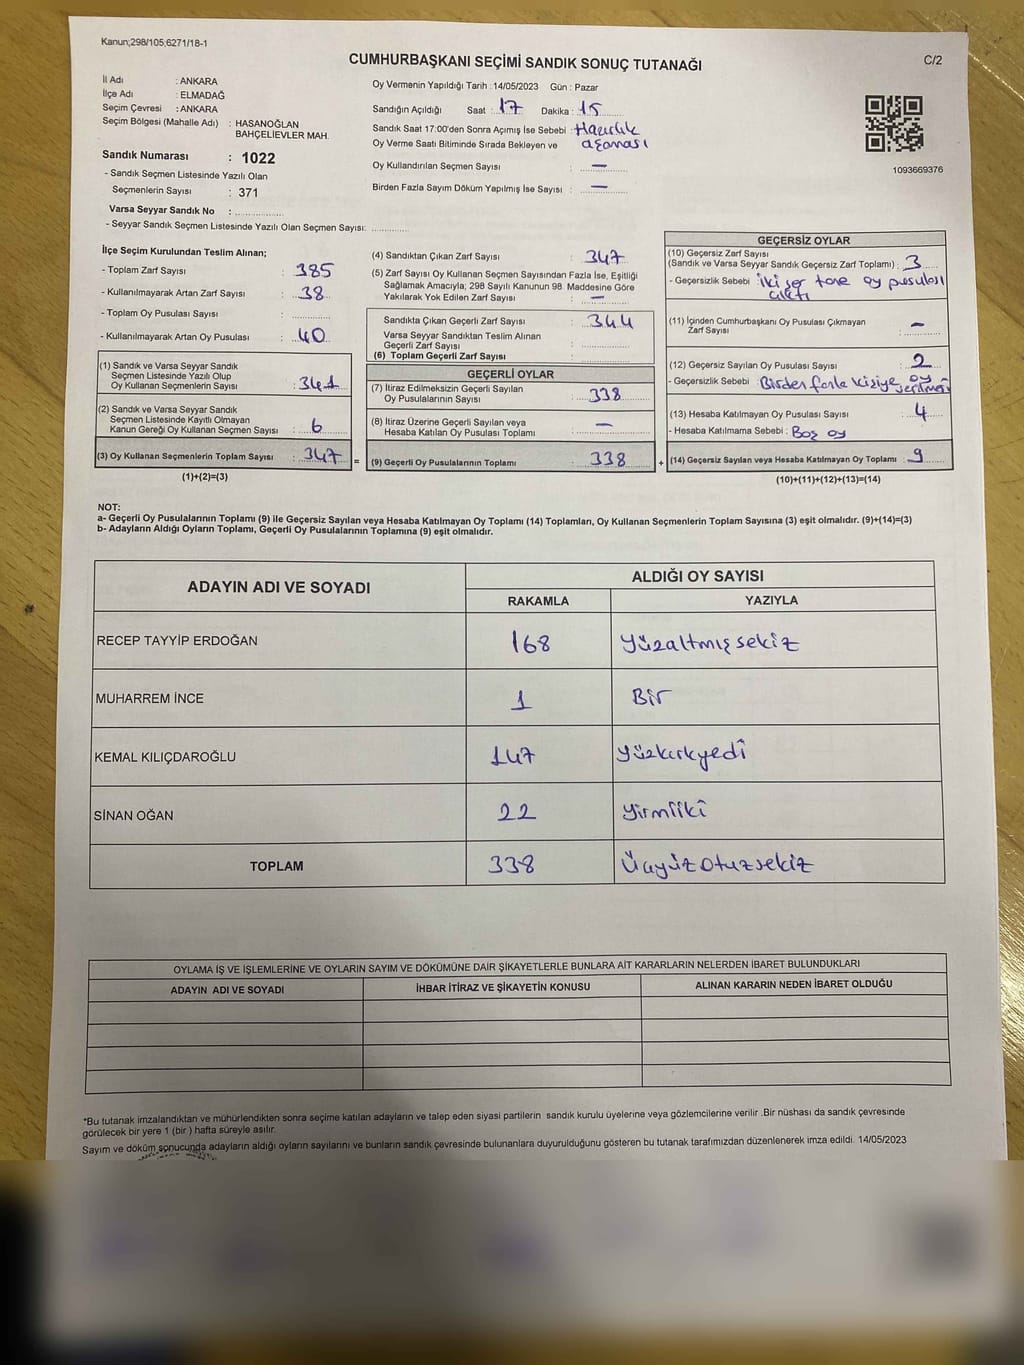 Kanun;298/105;6271/18-1
CUMHURBAŞKANI SEÇİMİ SANDIK SONUÇ TUTANAĞI
C/2
İl Adı : ANKARA
İlçe Adı : ELMADAĞ
Seçim Çevresi : ANKARA
Seçim Bölgesi (Mahalle Adı) : HASANOĞLAN
BAHÇELİEVLER MAH.
Sandık Numarası : 1022
- Sandık Seçmen Listesinde Yazılı Olan
Seçmenlerin Sayısı : 371
Varsa Seyyar Sandık No :
- Seyyar Sandık Seçmen Listesinde Yazılı Olan Seçmen Sayısı:
Oy Vermenin Yapıldığı Tarih : 14/05/2023 Gün : Pazar
Sandığın Açıldığı Saat : 17 Dakika : 15
Sandık Saat 17:00'den Sonra Açımış İse Sebebi : Hazırlık
Oy Verme Saati Bitiminde Sırada Bekleyen ve aşaması
Oy Kullandırılan Seçmen Sayısı : —
Birden Fazla Sayım Döküm Yapılmış İse Sayısı : —
1093669376
İlçe Seçim Kurulundan Teslim Alınan;
- Toplam Zarf Sayısı : 385
- Kullanılmayarak Artan Zarf Sayısı : 38
- Toplam Oy Pusulası Sayısı :
- Kullanılmayarak Artan Oy Pusulası : 40
(1) Sandık ve Varsa Seyyar Sandık
Seçmen Listesinde Yazılı Olup
Oy Kullanan Seçmenlerin Sayısı : 341
(2) Sandık ve Varsa Seyyar Sandık
Seçmen Listesinde Kayıtlı Olmayan
Kanun Gereği Oy Kullanan Seçmen Sayısı : 6
(3) Oy Kullanan Seçmenlerin Toplam Sayısı : 347 =
(1)+(2)=(3)
(4) Sandıktan Çıkan Zarf Sayısı : 347
(5) Zarf Sayısı Oy Kullanan Seçmen Sayısından Fazla İse, Eşitliği
Sağlamak Amacıyla; 298 Sayılı Kanunun 98. Maddesine Göre
Yakılarak Yok Edilen Zarf Sayısı : —
Sandıkta Çıkan Geçerli Zarf Sayısı : 344
Varsa Seyyar Sandıktan Teslim Alınan
Geçerli Zarf Sayısı :
(6) Toplam Geçerli Zarf Sayısı :
GEÇERLİ OYLAR
(7) İtiraz Edilmeksizin Geçerli Sayılan
Oy Pusulalarının Sayısı : 338
(8) İtiraz Üzerine Geçerli Sayılan veya
Hesaba Katılan Oy Pusulası Toplamı : —
(9) Geçerli Oy Pusulalarının Toplamı : 338 +
GEÇERSİZ OYLAR
(10) Geçersiz Zarf Sayısı
(Sandık ve Varsa Seyyar Sandık Geçersiz Zarf Toplamı) : 3
- Geçersizlik Sebebi : İkişer tane oy pusulası
çıktı
(11) İçinden Cumhurbaşkanı Oy Pusulası Çıkmayan
Zarf Sayısı : —
(12) Geçersiz Sayılan Oy Pusulası Sayısı : 2
- Geçersizlik Sebebi : Birden fazla kişiye oy
verilmesi
(13) Hesaba Katılmayan Oy Pusulası Sayısı : 4
- Hesaba Katılmama Sebebi : Boş oy
(14) Geçersiz Sayılan veya Hesaba Katılmayan Oy Toplamı : 9
(10)+(11)+(12)+(13)=(14)
NOT:
a- Geçerli Oy Pusulalarının Toplamı (9) ile Geçersiz Sayılan veya Hesaba Katılmayan Oy Toplamı (14) Toplamları, Oy Kullanan Seçmenlerin Toplam Sayısına (3) eşit olmalıdır. (9)+(14)=(3)
b- Adayların Aldığı Oyların Toplamı, Geçerli Oy Pusulalarının Toplamına (9) eşit olmalıdır.
ADAYIN ADI VE SOYADI
ALDIĞI OY SAYISI
RAKAMLA YAZIYLA
RECEP TAYYİP ERDOĞAN 168 Yüzaltmışsekiz
MUHARREM İNCE 1 Bir
KEMAL KILIÇDAROĞLU 147 Yüzkırkyedi
SİNAN OĞAN 22 Yirmiiki
TOPLAM 338 Üçyüzotuzsekiz
OYLAMA İŞ VE İŞLEMLERİNE VE OYLARIN SAYIM VE DÖKÜMÜNE DAİR ŞİKAYETLERLE BUNLARA AİT KARARLARIN NELERDEN İBARET BULUNDUKLARI
ADAYIN ADI VE SOYADI İHBAR İTİRAZ VE ŞİKAYETİN KONUSU ALINAN KARARIN NEDEN İBARET OLDUĞU
*Bu tutanak imzalandıktan ve mühürlendikten sonra seçime katılan adayların ve talep eden siyasi partilerin sandık kurulu üyelerine veya gözlemcilerine verilir .Bir nüshası da sandık çevresinde
görülecek bir yere 1 (bir ) hafta süreyle asılır.
Sayım ve döküm sonucunda adayların aldığı oyların sayılarını ve bunların sandık çevresinde bulunanlara duyurulduğunu gösteren bu tutanak tarafımızdan düzenlenerek imza edildi. 14/05/2023